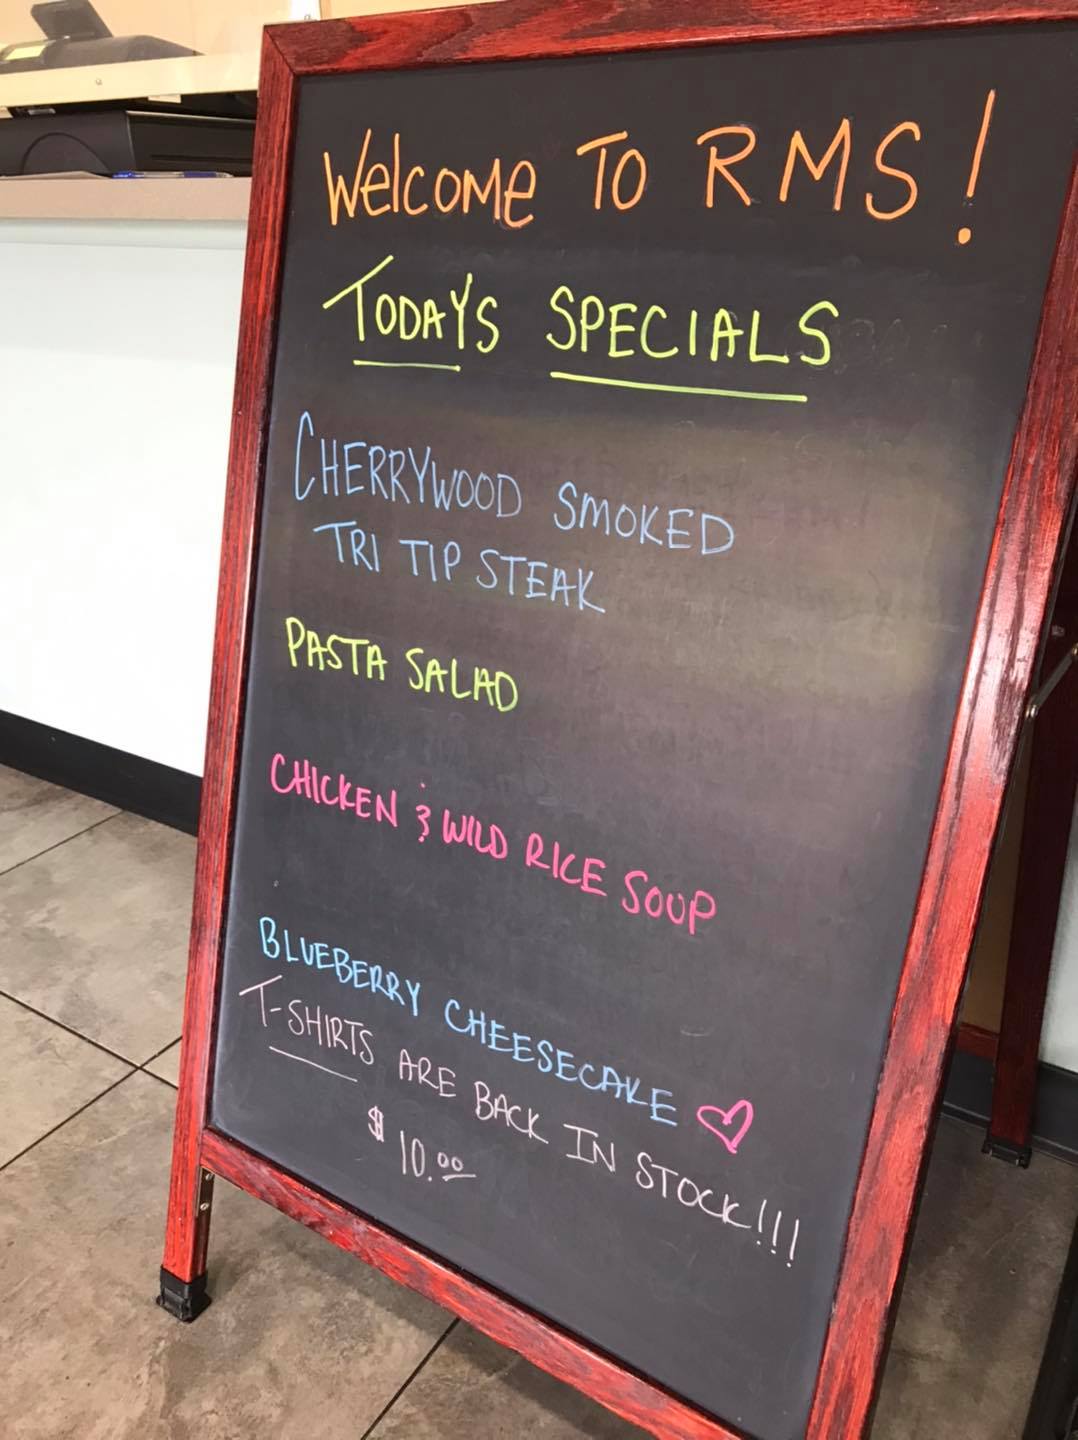 Welcome To RMS!
TODAYS SPECIALS
CHERRYWOOD SMOKED
TRI TIP STEAK
PASTA SALAD
CHICKEN & WILD RICE SOUP
BLUEBERRY CHEESECAKE
T-SHIRTS ARE BACK IN STOCK!!!
$10.00